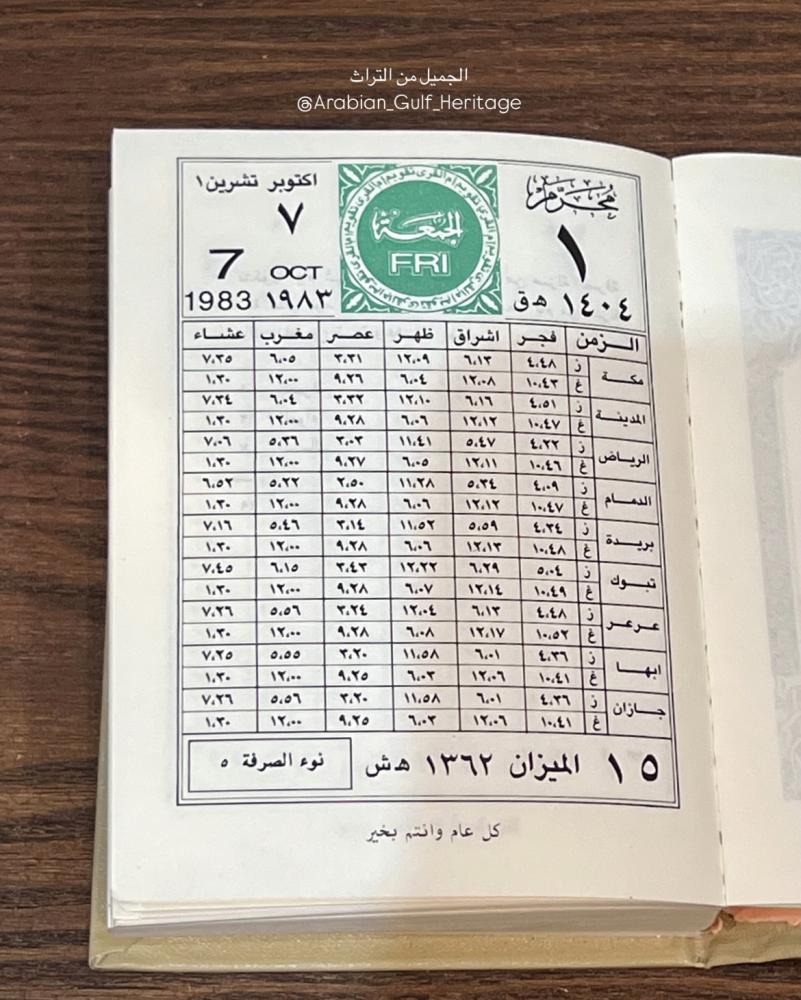 الجميل من التراث
@Arabian_Gulf_Heritage
محرم
١
١٤٠٤ هـ ق
الجمعة
FRI
اكتوبر تشرين ١
٧
7 OCT
1983 ١٩٨٣
الزمن فجر اشراق ظهر عصر مغرب عشاء
مكة ز ٤،٤٨ ٦،١٣ ١٢،٠٩ ٣،٣١ ٦،٠٥ ٧،٣٥
غ ١٠،٤٣ ١٢،٠٨ ٦،٠٤ ٩،٢٦ ١٢،٠٠ ١،٣٠
المدينة ز ٤،٥١ ٦،١٦ ١٢،١٠ ٣،٣٢ ٦،٠٤ ٧،٣٤
غ ١٠،٤٧ ١٢،١٢ ٦،٠٦ ٩،٢٨ ١٢،٠٠ ١،٣٠
الرياض ز ٤،٢٢ ٥،٤٧ ١١،٤١ ٣،٠٣ ٥،٣٦ ٧،٠٦
غ ١٠،٤٦ ١٢،١١ ٦،٠٥ ٩،٢٧ ١٢،٠٠ ١،٣٠
الدمام ز ٤،٠٩ ٥،٣٤ ١١،٢٨ ٢،٥٠ ٥،٢٢ ٦،٥٢
غ ١٠،٤٧ ١٢،١٢ ٦،٠٦ ٩،٢٨ ١٢،٠٠ ١،٣٠
بريدة ز ٤،٣٤ ٥،٥٩ ١١،٥٢ ٣،١٤ ٥،٤٦ ٧،١٦
غ ١٠،٤٨ ١٢،١٣ ٦،٠٦ ٩،٢٨ ١٢،٠٠ ١،٣٠
تبوك ز ٥،٠٤ ٦،٢٩ ١٢،٢٢ ٣،٤٣ ٦،١٥ ٧،٤٥
غ ١٠،٤٩ ١٢،١٤ ٦،٠٧ ٩،٢٨ ١٢،٠٠ ١،٣٠
عرعر ز ٤،٤٨ ٦،١٣ ١٢،٠٤ ٣،٢٤ ٥،٥٦ ٧،٢٦
غ ١٠،٥٢ ١٢،١٧ ٦،٠٨ ٩،٢٨ ١٢،٠٠ ١،٣٠
ابها ز ٤،٣٦ ٦،٠١ ١١،٥٨ ٣،٢٠ ٥،٥٥ ٧،٢٥
غ ١٠،٤١ ١٢،٠٦ ٦،٠٣ ٩،٢٥ ١٢،٠٠ ١،٣٠
جازان ز ٤،٣٦ ٦،٠١ ١١،٥٨ ٣،٢٠ ٥،٥٦ ٧،٢٦
غ ١٠،٤١ ١٢،٠٦ ٦،٠٣ ٩،٢٥ ١٢،٠٠ ١،٣٠
١٥ الميزان ١٣٦٢ هـ ش نوء الصرفة ٥
كل عام وانتم بخير